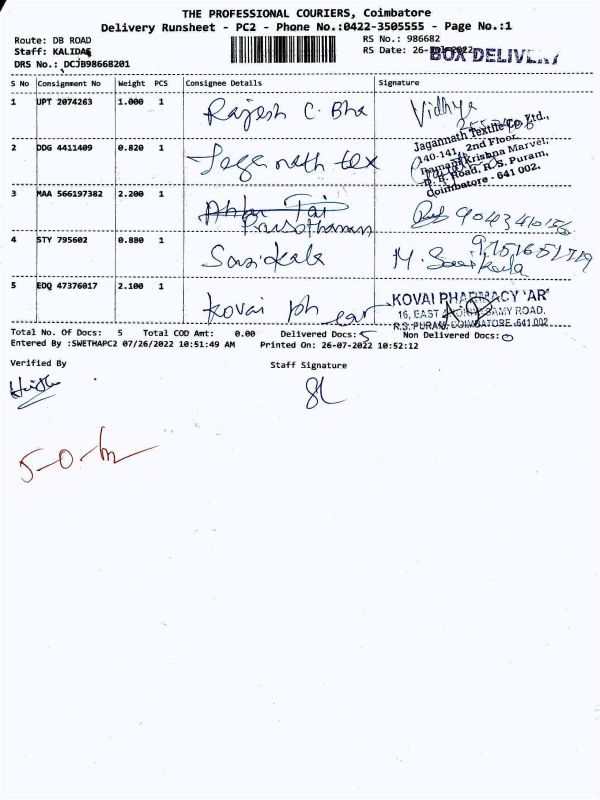 THE PROFESSIONAL COURIERS, Coimbatore
Delivery Runsheet - PC2 - Phone No.:0422-3505555 - Page No.:1
Route: DB ROAD
RS No.: 986682
Staff: KALIDAS
RS Date: 26-Jul-2022
BOX DELIVERY
DRS No.: DCJB98668201
S No Consignment No Weight PCS Consignee Details Signature
1 UPT 2074263 1.000 1 Rajesh C. Bha Vidhya
2 DDG 4411409 0.820 1 Jagannath tex
Jagannath Textile Co. Ltd.,
140-141, 2nd Floor,
Ramani Krishna Marvel,
D. B. Road, R. S. Puram,
Coimbatore - 641 002.
3 MAA 566197382 2.200 1
Prusothaman
4 STY 795602 0.880 1 Sasikala M. Sasikala
5 EDQ 47376017 2.100 1 Kovai ph
KOVAI PHARMACY 'AR'
16, EAST SAMY ROAD,
R.S. PURAM, COIMBATORE-641 002
Total No. Of Docs: 5 Total COD Amt: 0.00 Delivered Docs: 5 Non Delivered Docs: 0
Entered By :SWETHAPC2 07/26/2022 10:51:49 AM Printed On: 26-07-2022 10:52:12
Verified By Staff Signature
5-0-